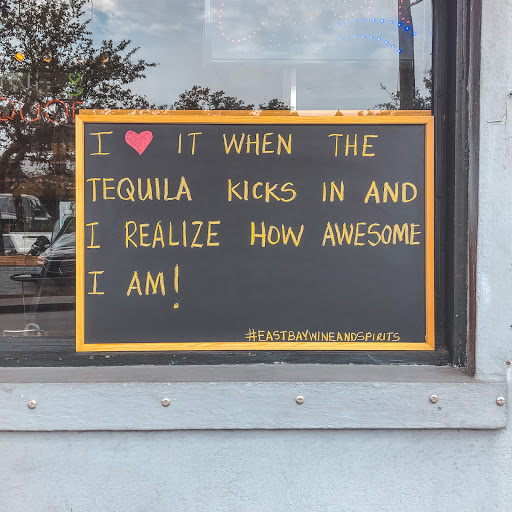 I ❤ IT WHEN THE
TEQUILA KICKS IN AND
I REALIZE HOW AWESOME
I AM!
#EASTBAYWINEANDSPIRITS